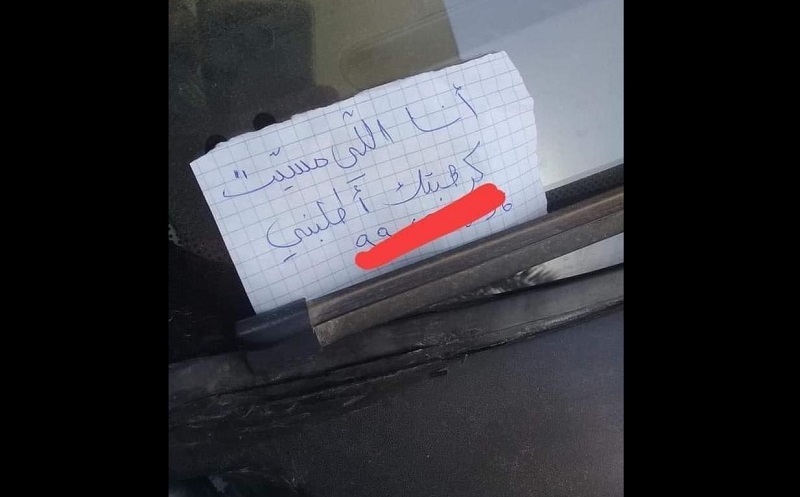 أنا اللّي مسيّت
كرهبتك أطلبني
99